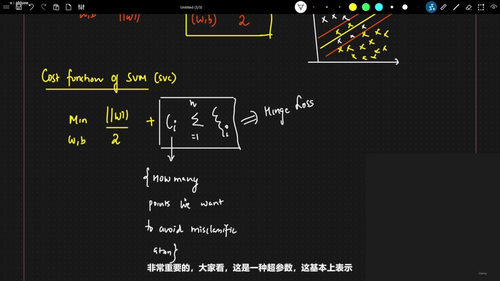 Untitled (3/3)
w,b ||w||
(w,b) 2
Cost function of SVM (SVC)
Min ||w|| + Ci n Σ ξi ⇒ Hinge Loss
w,b 2 i=1
{ How many
points we want
to avoid misclassific
ation}
非常重要的，大家看，这是一种超参数，这基本上表示